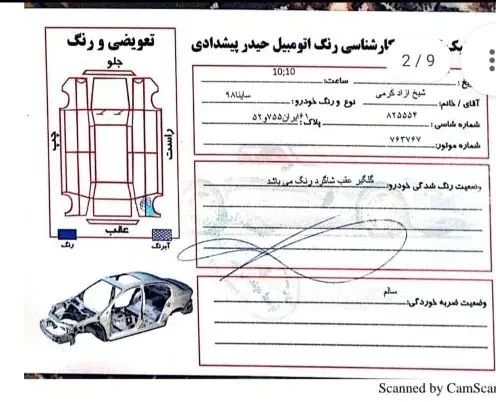 کارشناسی رنگ اتومبیل حیدر پیشدادی
2/9
تعویضی و رنگ
جلو
چپ
راست
عقب
رنگ
آبرنگ
ساعت: 10:10
آقای / خانم: شیخ ازاد کرمی نوع و رنگ خودرو: ساینا۹۸
شماره شاسی: ۸۲۵۵۵۴ پلاک:
شماره موتور: ۷۶۳۷۶۷
وضعیت رنگ شدگی خودرو: گلگیر عقب شاگرد رنگ می باشد
وضعیت ضربه خوردگی: سالم
Scanned by CamScan